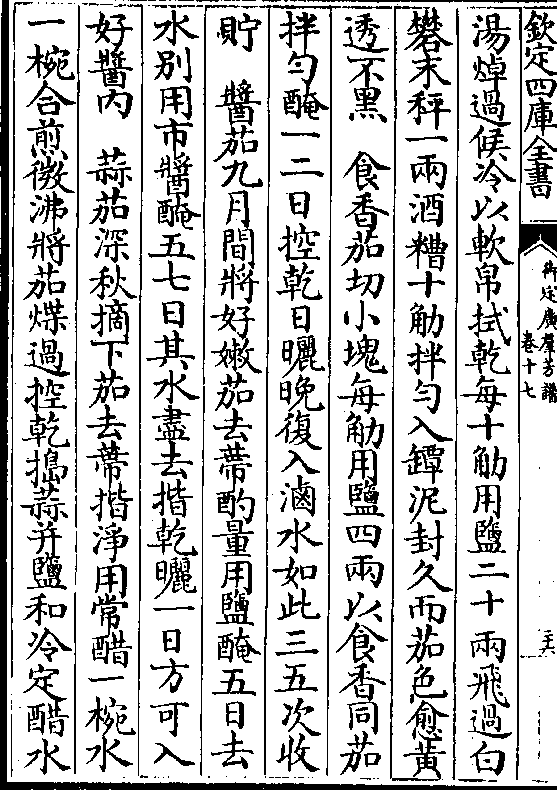 欽定四庫全書
御定廣羣芳譜
卷十七
二六
湯焯過候冷以軟帛拭乾每十觔用鹽二十兩飛過白
礬末秤一兩酒糟十觔拌勻入罈泥封久而茄色愈黃
透不黑　食香茄切小塊每觔用鹽四兩以食香同茄
拌勻醃一二日控乾日曬晚復入滷水如此三五次收
貯　醬茄九月間將好嫩茄去蔕酌量用鹽醃五日去
水別用市醬醃五七日其水盡去揩乾曬一日方可入
好醬內　蒜茄深秋摘下茄去蔕揩淨用常醋一椀水
一椀合煎微沸將茄煠過控乾搗蒜并鹽和冷定醋水